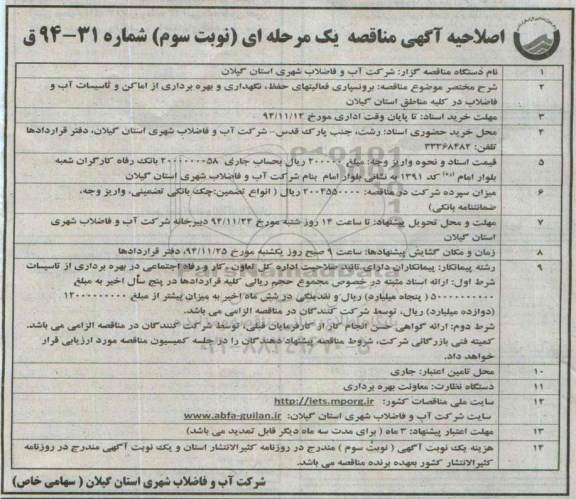 اصلاحیه آگهی مناقصه یک مرحله ای (نوبت سوم) شماره ۳۱-۹۴ ق
۱ نام دستگاه مناقصه گزار: شرکت آب و فاضلاب شهری استان گیلان
۲ شرح مختصر موضوع مناقصه: برونسپاری فعالیتهای حفظ، نگهداری و بهره برداری از اماکن و تاسیسات آب و
فاضلاب در کلیه مناطق استان گیلان
۳ مهلت خرید اسناد: تا پایان وقت اداری مورخ ۹۴/۱۱/۱۲
۴ محل خرید حضوری اسناد: رشت، جنب پارک قدس- شرکت آب و فاضلاب شهری استان گیلان، دفتر قراردادها
تلفن: ۳۳۳۶۸۴۸۲
۵ قیمت اسناد و نحوه واریز وجه: مبلغ ۲۰۰۰۰۰ ریال بحساب جاری ۲۰۰۰۰۰۰۰۵۸ بانک رفاه کارگران شعبه
بلوار امام (ره) کد ۱۳۹۱ به نشانی بلوار امام بنام شرکت آب و فاضلاب شهری استان گیلان
۶ میزان سپرده شرکت در مناقصه: ۲۰۰۴۵۵۰۰۰۰ ریال ( انواع تضمین:چک بانکی تضمینی، واریز وجه،
ضمانتنامه بانکی)
۷ مهلت و محل تحویل پیشنهاد: تا ساعت ۱۴ روز شنبه مورخ ۹۴/۱۱/۲۴ دبیرخانه شرکت آب و فاضلاب شهری
استان گیلان
۸ زمان و مکان گشایش پیشنهادها: ساعت ۹ صبح روز یکشنبه مورخ ۹۴/۱۱/۲۵، دفتر قراردادها
۹ رشته پیمانکار: پیمانکاران دارای تائید صلاحیت اداره کل تعاون، کار و رفاه اجتماعی در بهره برداری از تاسیسات
شرط اول: ارائه اسناد مثبته در خصوص مجموع حجم ریالی کلیه قراردادها در پنج سال اخیر به مبلغ
۵۰۰۰۰۰۰۰۰۰۰ ( پنجاه میلیارد) ریال و نقدینگی در شش ماه اخیر به میزان بیشتر از مبلغ ۱۲۰۰۰۰۰۰۰۰۰
(دوازده میلیارد) ریال، توسط شرکت کنندگان در مناقصه الزامی می باشد.
شرط دوم: ارائه گواهی حسن انجام کار از کارفرمایان قبلی، توسط شرکت کنندگان در مناقصه الزامی می باشد.
کمیته فنی بازرگانی شرکت، شروط مناقصه پیشنهاد دهندگان را در جلسه کمیسیون مناقصه مورد ارزیابی قرار
خواهد داد.
۱۰ محل تامین اعتبار: جاری
۱۱ دستگاه نظارت: معاونت بهره برداری
۱۲ سایت ملی مناقصات کشور: http://iets.mporg.ir
سایت شرکت آب و فاضلاب شهری استان گیلان: www.abfa-guilan.ir
۱۳ مهلت اعتبار پیشنهاد: ۳ ماه ( برای مدت سه ماه دیگر قابل تمدید می باشد)
۱۴ هزینه یک نوبت آگهی ( نوبت سوم ) مندرج در روزنامه کثیرالانتشار استان و یک نوبت آگهی مندرج در روزنامه
کثیرالانتشار کشور بعهده برنده مناقصه می باشد.
شرکت آب و فاضلاب شهری استان گیلان ( سهامی خاص)